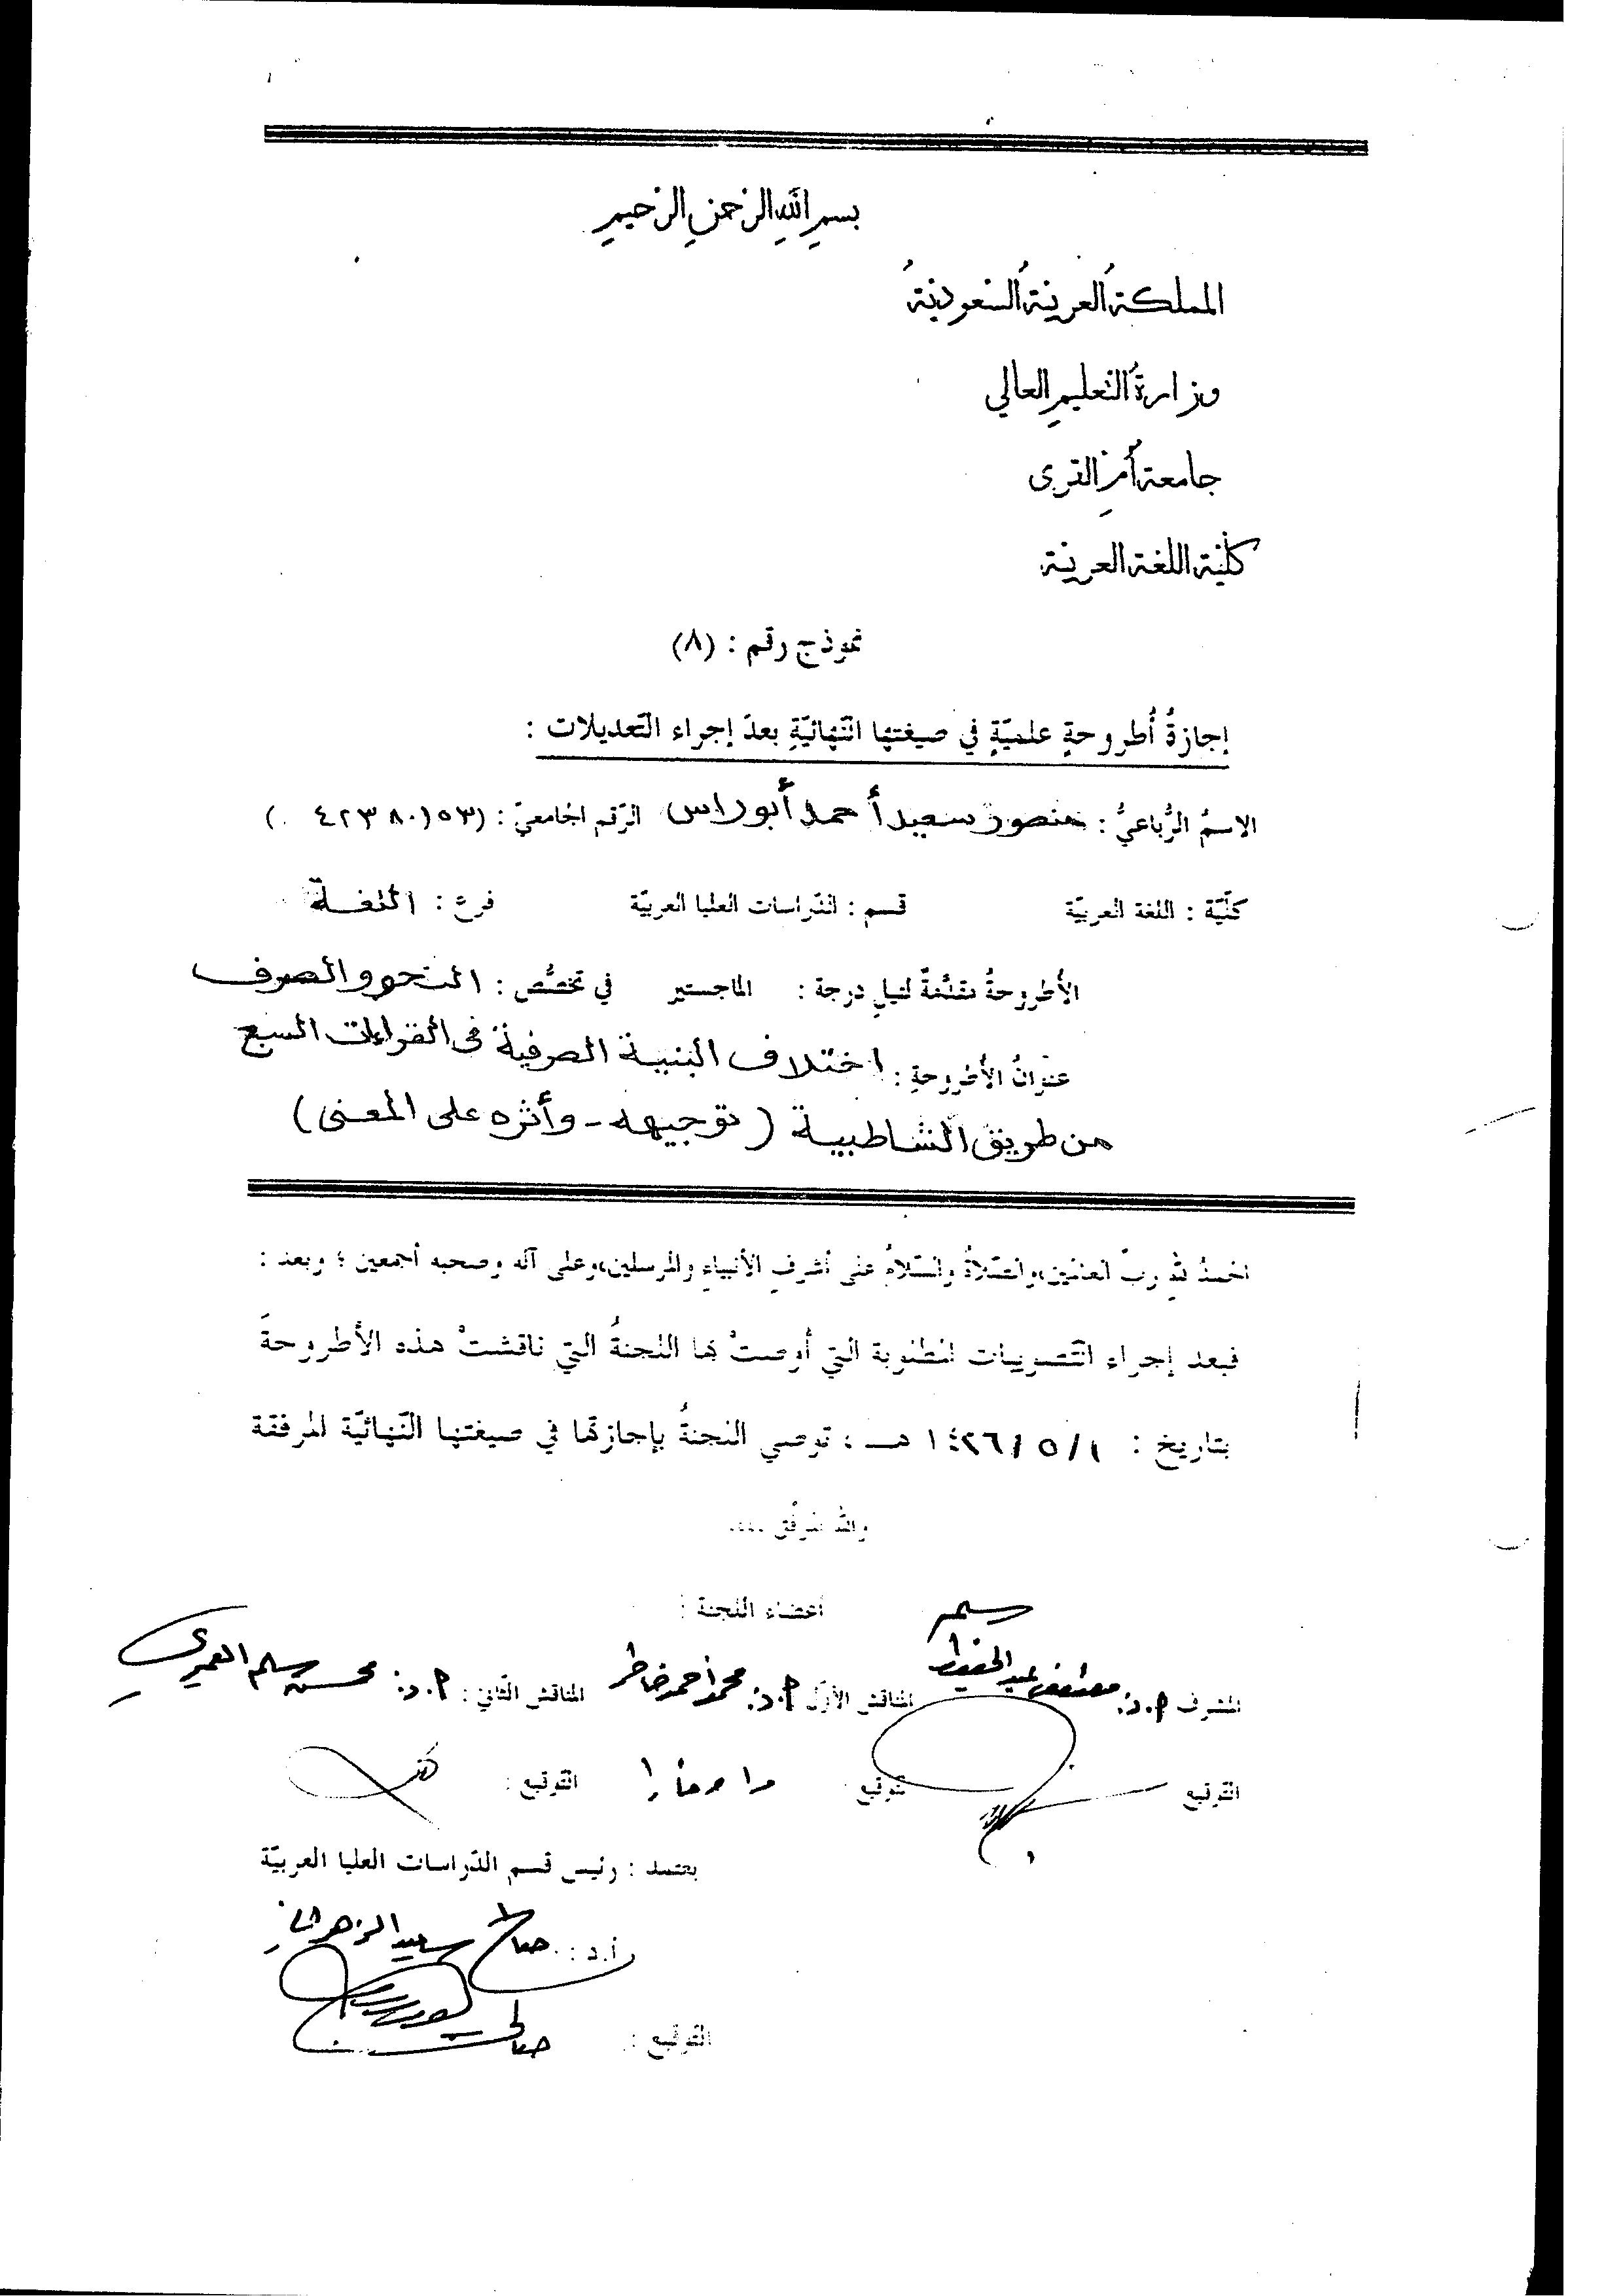 بسم الله الرحمن الرحيم
المملكة العربية السعودية
وزارة التعليم العالي
جامعة أم القرى
كلية اللغة العربية
نموذج رقم : (٨)
إجازةُ أُطروحةٍ علميّةٍ في صيغتها النّهائيّةِ بعدَ إجراء التّعديلات :
الاسمُ الرُّباعيُّ : منصور سعيد أحمد أبوراس الرّقم الجامعيّ : (٤٢٣٨٠١٥٣)
كلّيّة : اللغة العربيّة قسم : الدّراسات العليا العربيّة فرع : اللغة
الأطروحةُ مقدّمةٌ لنيلِ درجة : الماجستير في تخصُّص : النحو والصرف
عنوانُ الأطروحةِ : اختلاف البنية الصرفية في القراءات السبع
من طريق الشاطبية (توجيهه - وأثره على المعنى)
الحمدُ للهِ ربِّ العالمين، والصّلاةُ والسّلامُ على أشرفِ الأنبياءِ والمرسلين، وعلى آله وصحبه أجمعين ؛ وبعد :
فبعد إجراء التّصويبات المطلوبة التي أوصتْ بها اللجنةُ التي ناقشتْ هذه الأطروحةَ
بتاريخ : ١ / ٥ / ١٤٢٦ هـ ، توصي اللجنةُ بإجازتها في صيغتها النّهائيّة المرفقة
والله الموفّق ....
أعضاء اللجنة :
المشرف أ.د: مصطفى عبدالحفيظ سالم المناقش الأوّل أ.د: محمد أحمد خاطر المناقش الثاني : أ.د: محسن سالم العميري
التوقيع التوقيع التوقيع :
يعتمد : رئيس قسم الدّراسات العليا العربيّة
أ.د : صالح سعيد الزهراني
التوقيع :